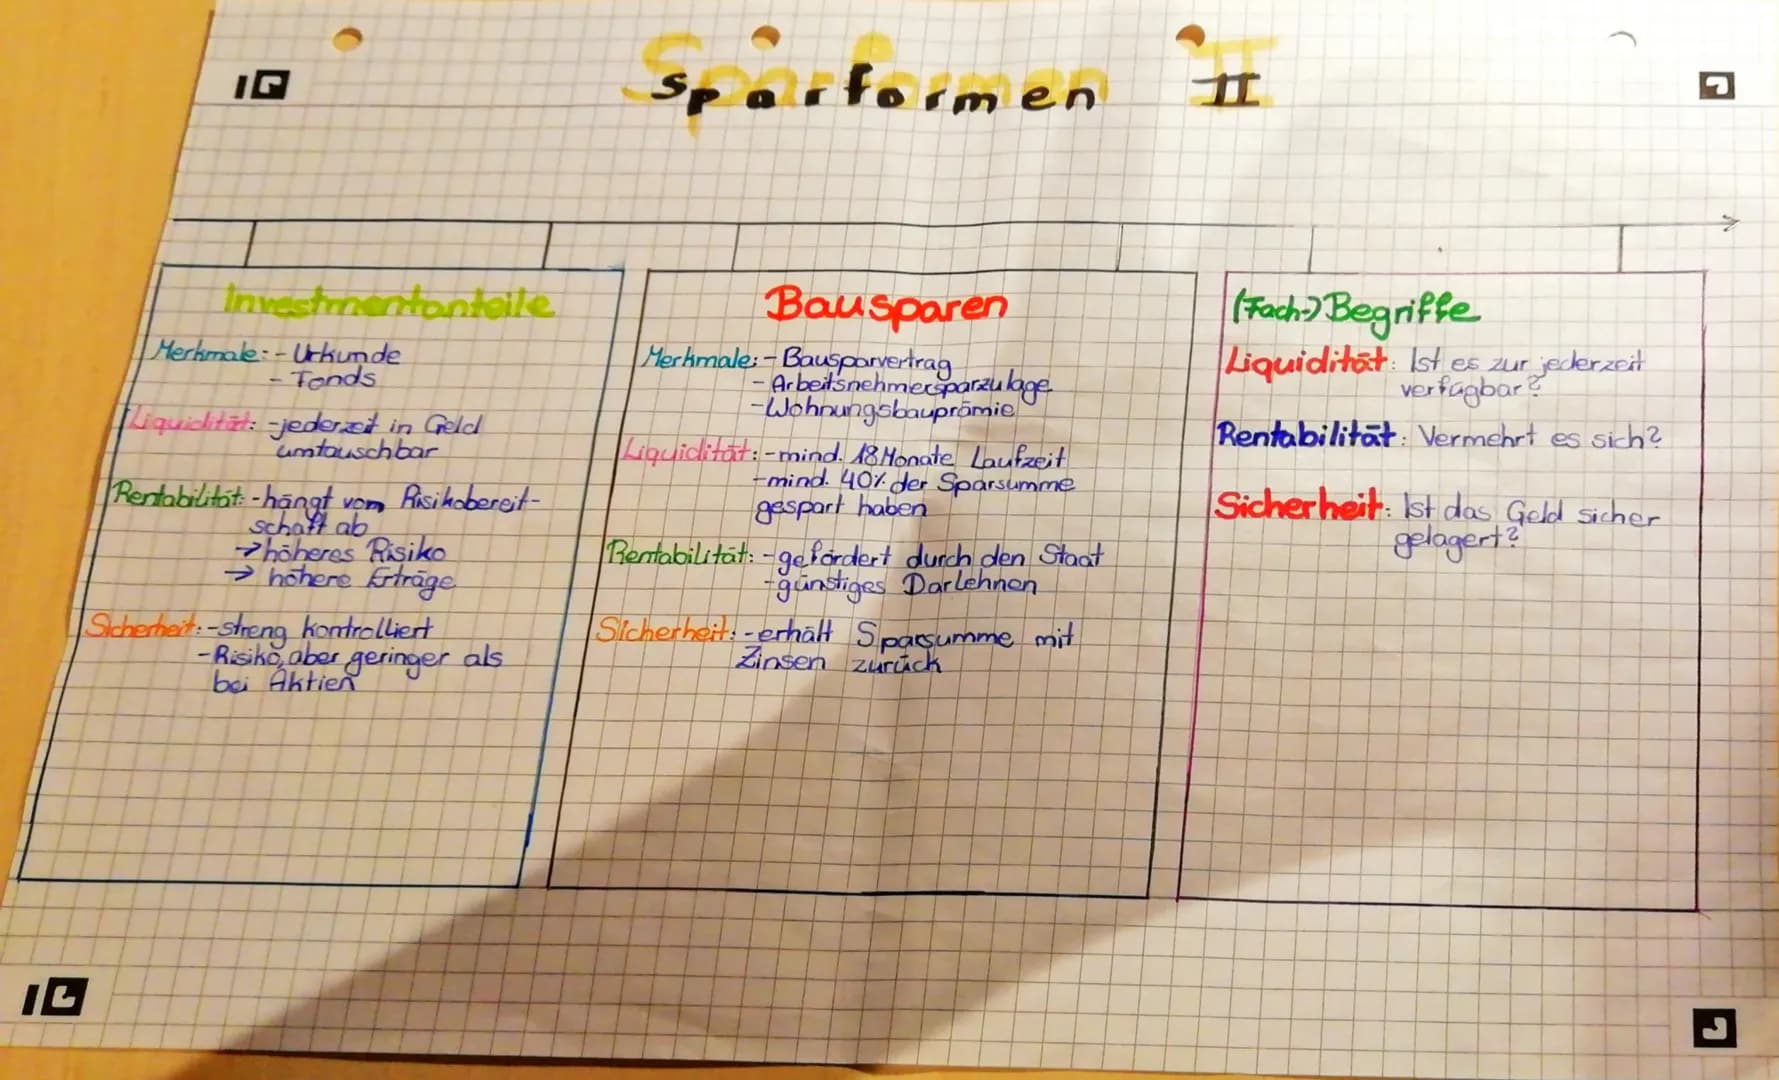 Sparformen II
Investmentanteile
Merkmale: - Urkunde
- Fonds
Liquidität: - jederzeit in Geld
umtauschbar
Rentabilität: - hängt vom Risikobereit-
schaft ab
→ höheres Risiko
→ höhere Erträge
Sicherheit: - streng kontrolliert
- Risiko, aber geringer als
bei Aktien
Bausparen
Merkmale: - Bausparvertrag
- Arbeitsnehmersparzulage
- Wohnungsbauprämie
Liquidität: - mind. 18 Monate Laufzeit
- mind. 40% der Sparsumme
gespart haben
Rentabilität: - gefördert durch den Staat
- günstiges Darlehnen
Sicherheit: - erhält Sparsumme mit
Zinsen zurück
(Fach-) Begriffe
Liquidität: Ist es zur jederzeit
verfügbar?
Rentabilität: Vermehrt es sich?
Sicherheit: Ist das Geld sicher
gelagert?